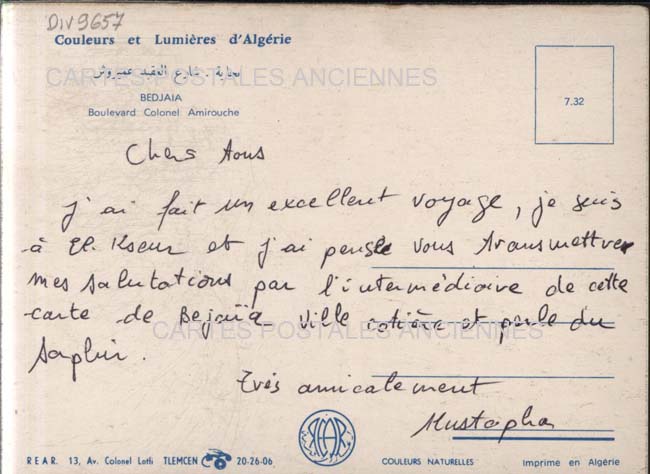 Div 9657
Couleurs et Lumières d'Algérie
بجاية . شارع العقيد عميروش
CARTES POSTALES ANCIENNES
BEDJAIA
Boulevard Colonel Amirouche
7.32
Chers Aous
J'ai fait un excellent voyage, je suis
à El. Kseur et j'ai pensé vous transmettre
mes salutations par l'intermédiaire de cette
carte de Bejaïa ville cotière et perle du
CARTES POSTALES ANCIENNES
saphir.
Très amicalement
Mustapha
R E A R. 13, Av. Colonel Lotfi TLEMCEN 20-26-06
COULEURS NATURELLES
Imprimé en Algérie